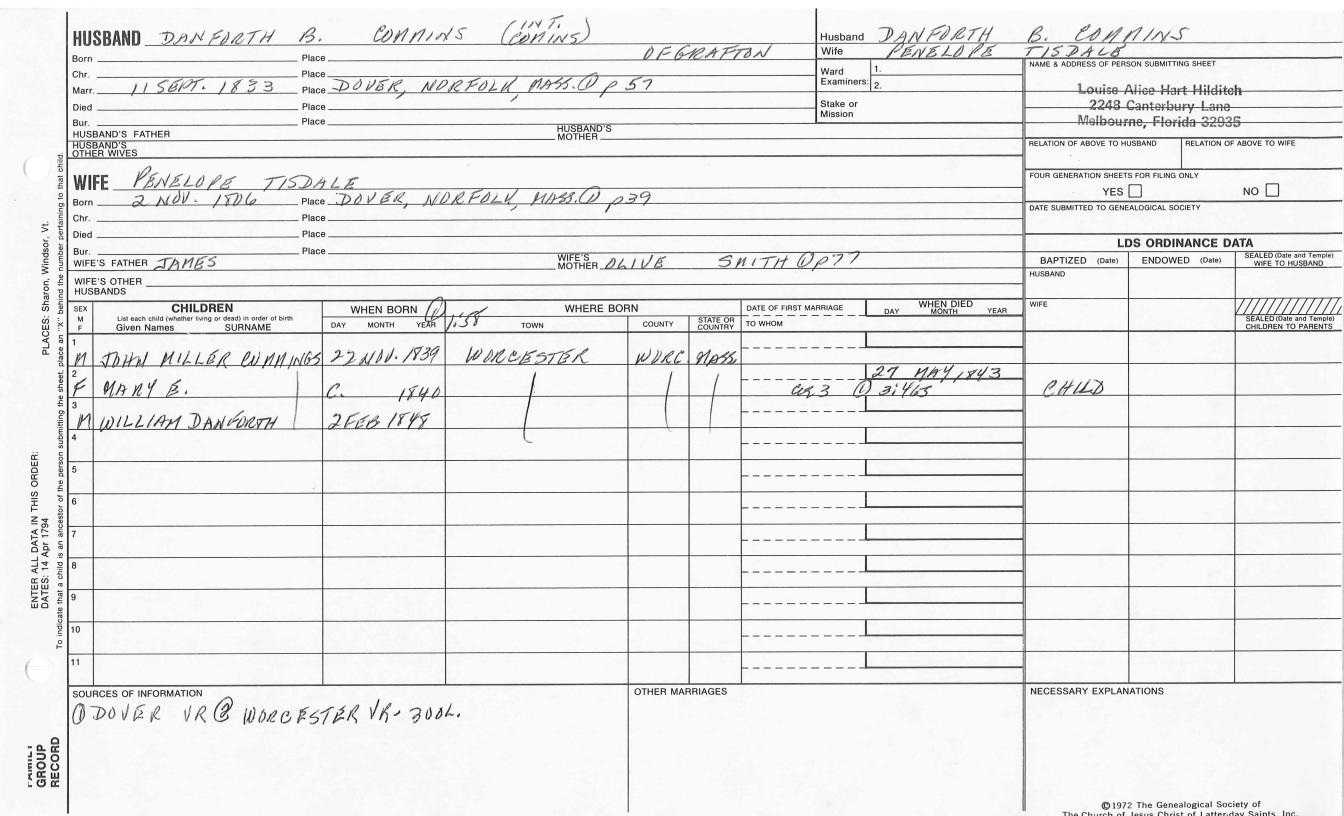 HUSBAND DANFORTH B. COMMINS (INT. COMINS)
Born Place OF GRAFTON
Chr. Place
Marr. 11 SEPT. 1833 Place DOVER, NORFOLK, MASS. ① p 57
Died Place
Bur. Place
HUSBAND'S FATHER HUSBAND'S MOTHER
HUSBAND'S OTHER WIVES
Husband DANFORTH B. COMMINS
Wife PENELOPE TISDALE
Ward Examiners: 1.
2.
Stake or Mission
NAME & ADDRESS OF PERSON SUBMITTING SHEET
Louise Alice Hart Hilditch
2248 Canterbury Lane
Melbourne, Florida 32935
RELATION OF ABOVE TO HUSBAND RELATION OF ABOVE TO WIFE
FOUR GENERATION SHEETS FOR FILING ONLY
YES NO
DATE SUBMITTED TO GENEALOGICAL SOCIETY
WIFE PENELOPE TISDALE
Born 2 NOV. 1806 Place DOVER, NORFOLK, MASS. ① p39
Chr. Place
Died Place
Bur. Place
WIFE'S FATHER JAMES WIFE'S MOTHER OLIVE SMITH ① p77
WIFE'S OTHER HUSBANDS
LDS ORDINANCE DATA
BAPTIZED (Date) ENDOWED (Date) SEALED (Date and Temple) WIFE TO HUSBAND
HUSBAND
WIFE
SEALED (Date and Temple) CHILDREN TO PARENTS
SEX M F CHILDREN WHEN BORN 1:58 WHERE BORN DATE OF FIRST MARRIAGE WHEN DIED
List each child (whether living or dead) in order of birth
Given Names SURNAME DAY MONTH YEAR TOWN COUNTY STATE OR COUNTRY TO WHOM DAY MONTH YEAR
1 M JOHN MILLER CUMMINGS 22 NOV. 1839 WORCESTER WORC. MASS.
2 27 MAY, 1843
F MARY E. C. 1840 3:465 CHILD
3 M WILLIAM DANFORTH 2 FEB 1848
4
5
6
7
8
9
10
11
SOURCES OF INFORMATION
① DOVER VR ② WORCESTER VR-
OTHER MARRIAGES
NECESSARY EXPLANATIONS
PLACES: Sharon, Windsor, Vt.
ENTER ALL DATA IN THIS ORDER:
DATES: 14 Apr 1794
To indicate that a child is an ancestor of the person submitting the sheet, place an "X" behind the number pertaining to that child.
FAMILY GROUP RECORD
©1972 The Genealogical Society of
The Church of Jesus Christ of Latter-day Saints, Inc.